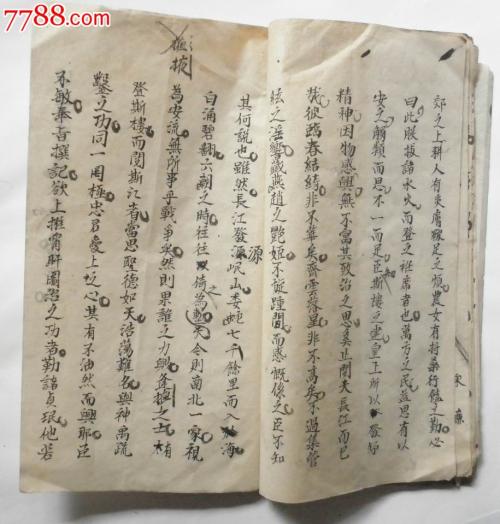 7788.com
郊之上耕人有炙膚皸足之煩農女有捋桑行饁之勤必
曰此朕拔諸水火而登之衽席者也萬方之民益思有以
安之觸類而思不一而足臣斯樓之建皇上所以發舒
精神因物感興無不寓其致治之思奚止閱夫長江而已
哉彼臨春結綺非不華矣齊雲落星非不高矣不過集管
絃之淫響藏燕趙之艷姬不旋踵間而感慨係之臣不知
其何說也雖然長江發源岷山委蛇七千餘里而入於海
源
白涌碧翻六朝之時往往倚為塹天今則南北一家視
之
為安流無所事乎戰爭矣然則思誰之力與逢掖之士有
掖
登斯樓而閱斯江者當思聖德如天浩蕩難名與神禹疏
鑿之功同一罔極忠君愛上之心其有不油然而興耶臣
不敏奉旨撰記欲上推宵旰圖治之功者勒諸貞珉他若
宋濂